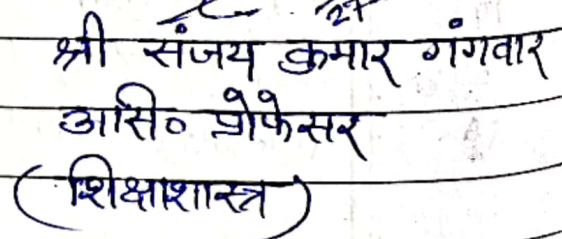 श्री संजय कुमार गंगवार
असि० प्रोफेसर
(शिक्षाशास्त्र)